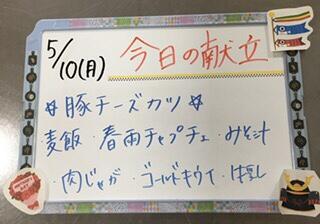 5/10(月)
今日の献立
☆豚チーズカツ☆
麦飯・春雨チャプチェ・みそ汁
・肉じゃが・ゴールドキウイ・牛乳